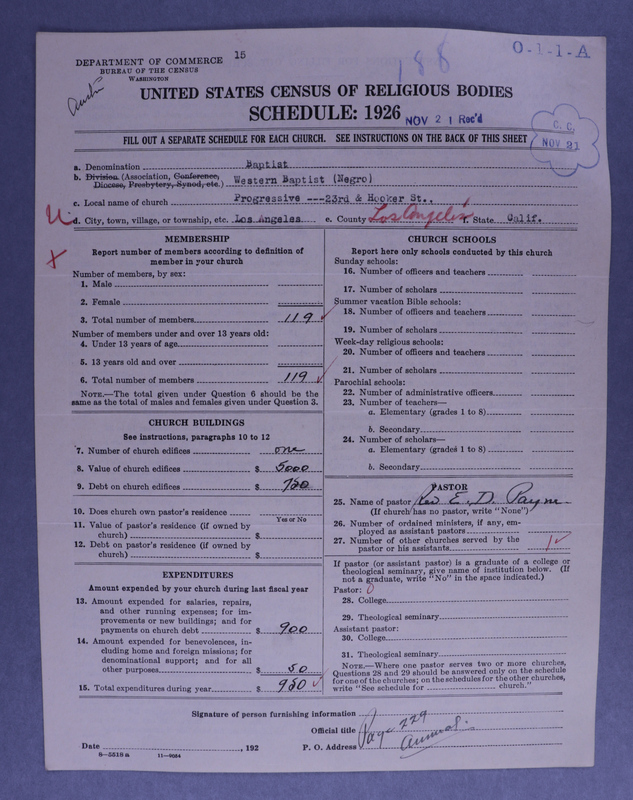 15
188
O-1-1-A
DEPARTMENT OF COMMERCE
BUREAU OF THE CENSUS
WASHINGTON
Austin
UNITED STATES CENSUS OF RELIGIOUS BODIES
SCHEDULE: 1926
NOV 21 Rec'd
C. C.
NOV 21
FILL OUT A SEPARATE SCHEDULE FOR EACH CHURCH. SEE INSTRUCTIONS ON THE BACK OF THIS SHEET
a. Denomination Baptist
b. Division (Association, Conference, Diocese, Presbytery, Synod, etc.) Western Baptist (Negro)
c. Local name of church Progressive ---23rd & Hooker St.,
d. City, town, village, or township, etc. Los Angeles e. County Los Angeles f. State Calif.
MEMBERSHIP
Report number of members according to definition of
member in your church
Number of members, by sex:
1. Male
2. Female
3. Total number of members 119
Number of members under and over 13 years old:
4. Under 13 years of age
5. 13 years old and over
6. Total number of members 119
NOTE.—The total given under Question 6 should be the
same as the total of males and females given under Question 3.
CHURCH BUILDINGS
See instructions, paragraphs 10 to 12
7. Number of church edifices one
8. Value of church edifices $ 5000
9. Debt on church edifices $ 750
10. Does church own pastor's residence
Yes or No
11. Value of pastor's residence (if owned by
church) $
12. Debt on pastor's residence (if owned by
church) $
EXPENDITURES
Amount expended by your church during last fiscal year
13. Amount expended for salaries, repairs,
and other running expenses; for im-
provements or new buildings; and for
payments on church debt $ 900
14. Amount expended for benevolences, in-
cluding home and foreign missions; for
denominational support; and for all
other purposes $ 50
15. Total expenditures during year $ 950
CHURCH SCHOOLS
Report here only schools conducted by this church
Sunday schools:
16. Number of officers and teachers
17. Number of scholars
Summer vacation Bible schools:
18. Number of officers and teachers
19. Number of scholars
Week-day religious schools:
20. Number of officers and teachers
21. Number of scholars
Parochial schools:
22. Number of administrative officers
23. Number of teachers—
a. Elementary (grades 1 to 8)
b. Secondary
24. Number of scholars—
a. Elementary (grades 1 to 8)
b. Secondary
PASTOR
25. Name of pastor Rev E. D. Payne
(If church has no pastor, write "None")
26. Number of ordained ministers, if any, em-
ployed as assistant pastors
27. Number of other churches served by the
pastor or his assistants 1
If pastor (or assistant pastor) is a graduate of a college or
theological seminary, give name of institution below. (If
not a graduate, write "No" in the space indicated.)
Pastor: 0
28. College
29. Theological seminary
Assistant pastor:
30. College
31. Theological seminary
NOTE.—Where one pastor serves two or more churches,
Questions 28 and 29 should be answered only on the schedule
for one of the churches; on the schedules for the other churches,
write "See schedule for church."
Signature of person furnishing information
Official title
Page 229
Annual.
Date , 192 P. O. Address
8—5518a 11—9684